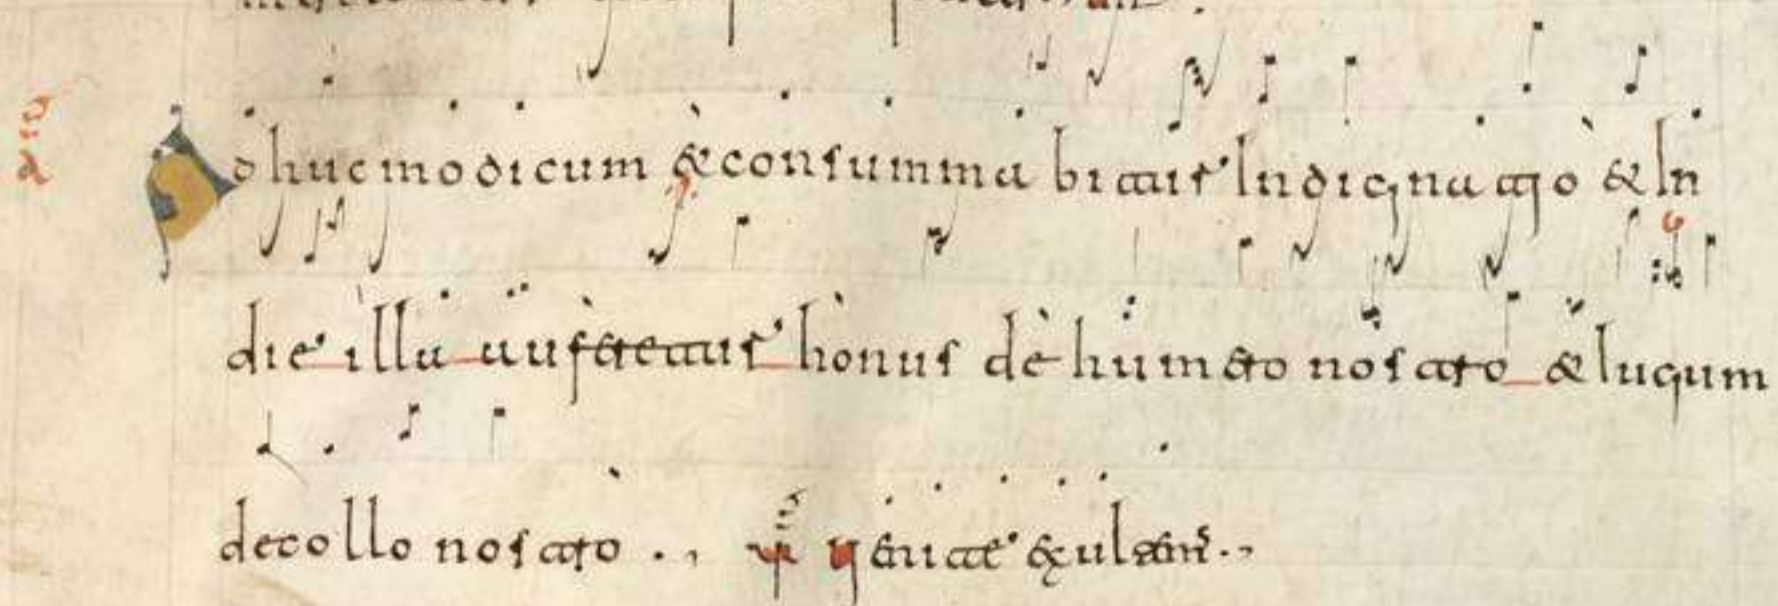 Adhuc modicum & consummabitur Indignatio & In
die illa auferetur honus de humero nostro & Iugum
de collo nostro